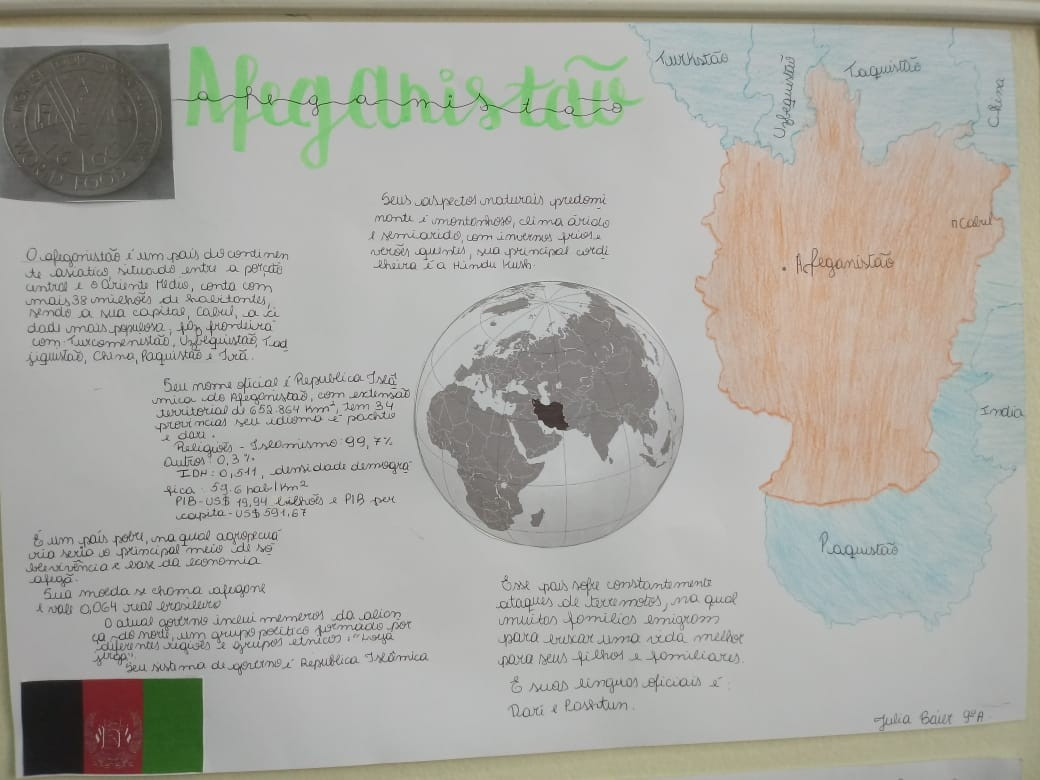 Afeganistão
afeganistão
WORLD FOOD
Seus aspectos naturais predomi
nante é montanhoso, clima árido
e semiárido, com invernos frios e
verões quentes, sua principal cordi
lheira é a Hindu Kush.
O afeganistão é um país do continen
te asiático situado entre a porção
central e o Oriente Médio, conta com
mais 38 milhões de habitantes,
sendo a sua capital, Cabul, a ci
dade mais populosa, faz fronteira
com: Turcomenistão, Uzbequistão, Tad
jiquistão, China, Paquistão e Irã.
Seu nome oficial é Republica Islâ
mica do Afeganistão, com extensão
territorial de 652.864 km², tem 34
províncias seu idioma é pachto
e dari.
Religiões - Islamismo: 99,7%
Outros: 0,3%
IDH: 0,511, densidade demográ
fica: 59.6 hab/km²
PIB-US$ 19,94 bilhões e PIB per
capita-US$ 591,67
É um país pobre, na qual agropecuá
ria seria o principal meio de so
brevivência e base da economia
afegã.
Sua moeda se chama afegane
e vale 0,064 real brasileiro
O atual governo inclui memeros da alian
ça do norte, um grupo político formado por
diferentes regiões e grupos etnicos, "Loya
jirga".
Seu sistema de governo é Republica Islâmica
Esse país sofre constantemente
ataques de terremotos, na qual
muitas familias emigram
para buscar uma vida melhor
para seus filhos e familiares.
E suas linguas oficiais é:
Dari e Pashtun.
Turkstão
Uzbequistão
Taquistão
China
Cabul
Afeganistão
India
Paquistão
Julia Baier 9ºA